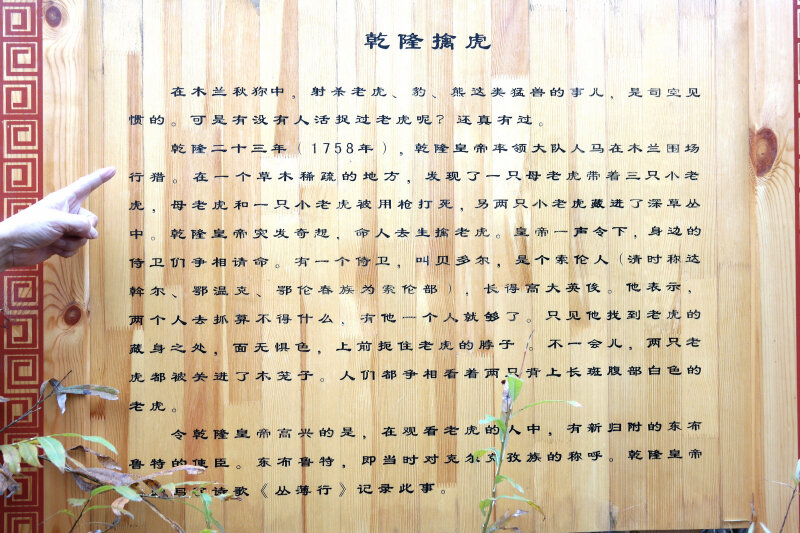 乾隆擒虎
在木兰秋狝中，射杀老虎、豹、熊这类猛兽的事儿，是司空见
惯的。可是有没有人活捉过老虎呢？还真有过。
乾隆二十三年（1758年），乾隆皇帝率领大队人马在木兰围场
行猎。在一个草木稀疏的地方，发现了一只母老虎带着三只小老
虎，母老虎和一只小老虎被用枪打死，另两只小老虎藏进了深草丛
中。乾隆皇帝突发奇想，命人去生擒老虎。皇帝一声令下，身边的
侍卫们争相请命。有一个侍卫，叫贝多尔，是个索伦人（清时称达
斡尔、鄂温克、鄂伦春族为索伦部），长得高大英俊。他表示，
两个人去抓算不得什么，有他一个人就够了。只见他找到老虎的
藏身之处，面无惧色，上前扼住老虎的脖子。不一会儿，两只老
虎都被关进了木笼子。人们都争相看着两只背上长斑腹部白色的
老虎。
令乾隆皇帝高兴的是，在观看老虎的人中，有新归附的东布
鲁特的使臣。东布鲁特，即当时对克尔克孜族的称呼。乾隆皇帝
写了诗歌《丛薄行》记录此事。